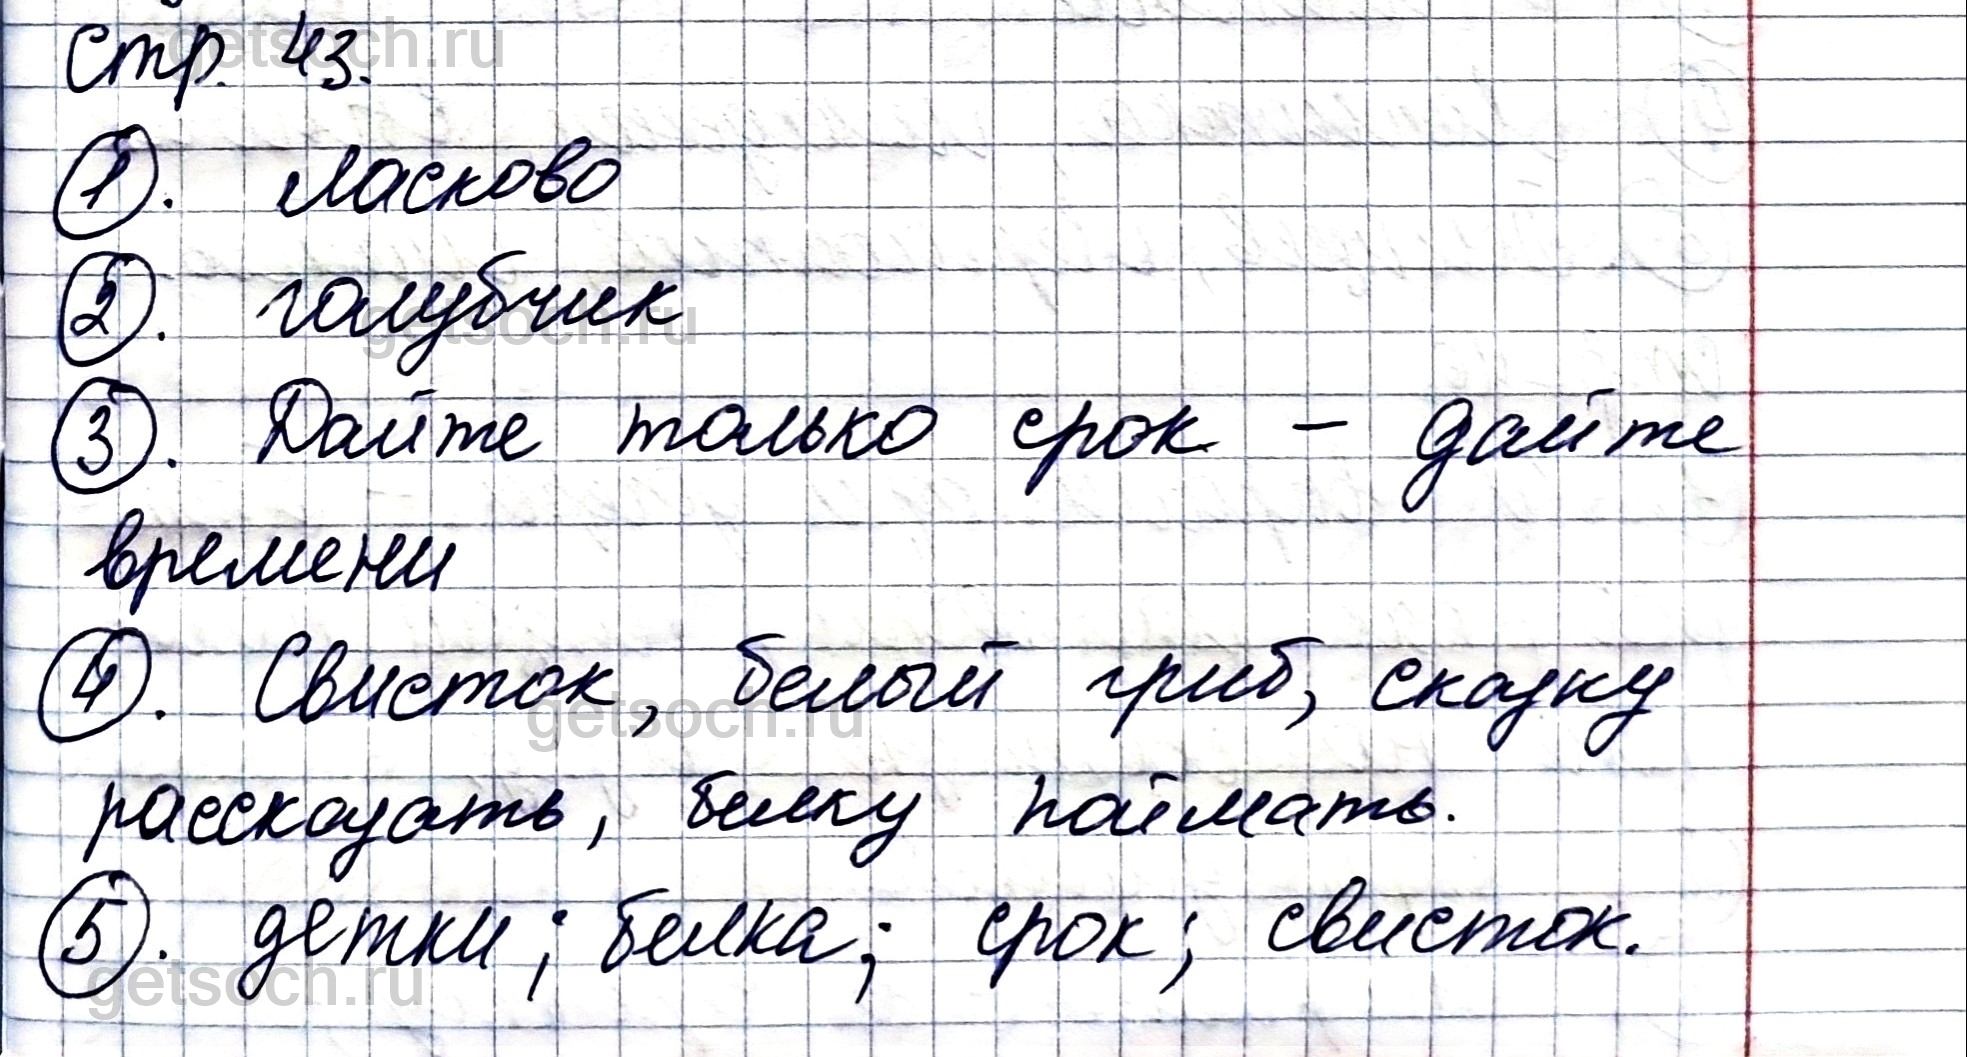 стр. 43.
1). Ласково
2). голубчик
3). Дайте только срок - дайте
времени
4). Свисток, белый гриб, сказку
рассказать, белку поймать.
5). детки; белка; срок; свисток.
getsoch.ru
getsoch.ru
getsoch.ru
getsoch.ru